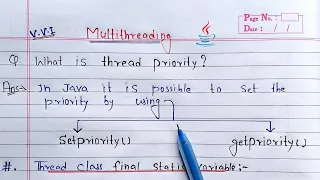 V.V.I Multithreading Page No.:
Date: / /
Q. What is thread priority?
Ans→ In Java it is possible to Set the
priority by using
Setpriority() getpriority()
#. Thread class final static variable:-